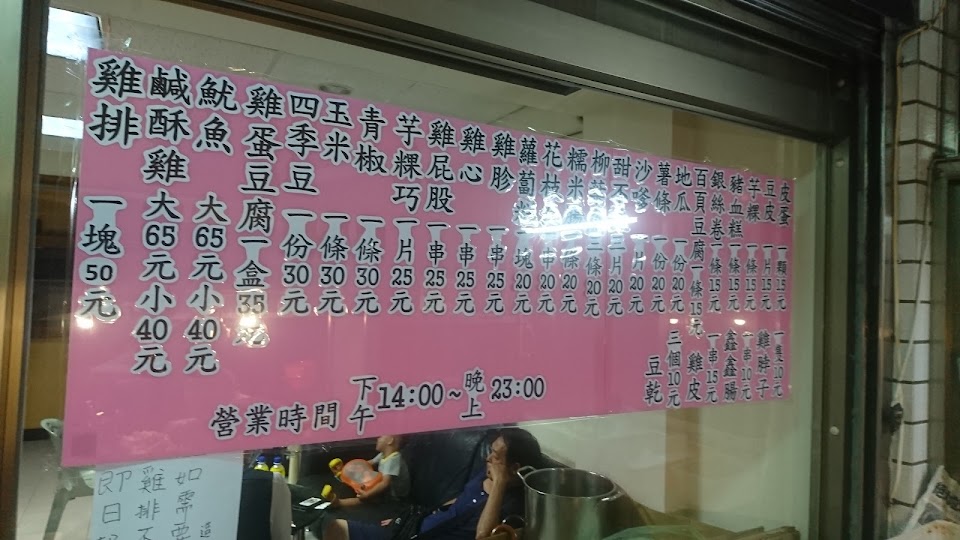 雞排 一塊50元
鹹酥雞 大65元小40元
魷魚 大65元小40元
雞蛋豆腐 一盒35元
四季豆 一份30元
玉米 一條30元
青椒 一條30元
芋粿巧 一片25元
雞屁股 一串25元
雞心 一串25元
雞胗 一串25元
蘿蔔 一塊20元
花枝 一串20元
糯米 一條20元
柳 三條20元
甜不 三片20元
沙嗲 一片20元
薯條 一份20元
地瓜 一份20元
百頁豆腐 一條15元
銀絲卷 一條15元
豬血糕 一條15元
芋粿 一條15元
豆皮 一片15元
皮蛋 一顆15元
豆乾 三個10元
雞皮 一串15元
鑫鑫腸 一串10元
雞脖子 一隻10元
營業時間 下午14:00~晚上23:00
如需要
雞排
即日